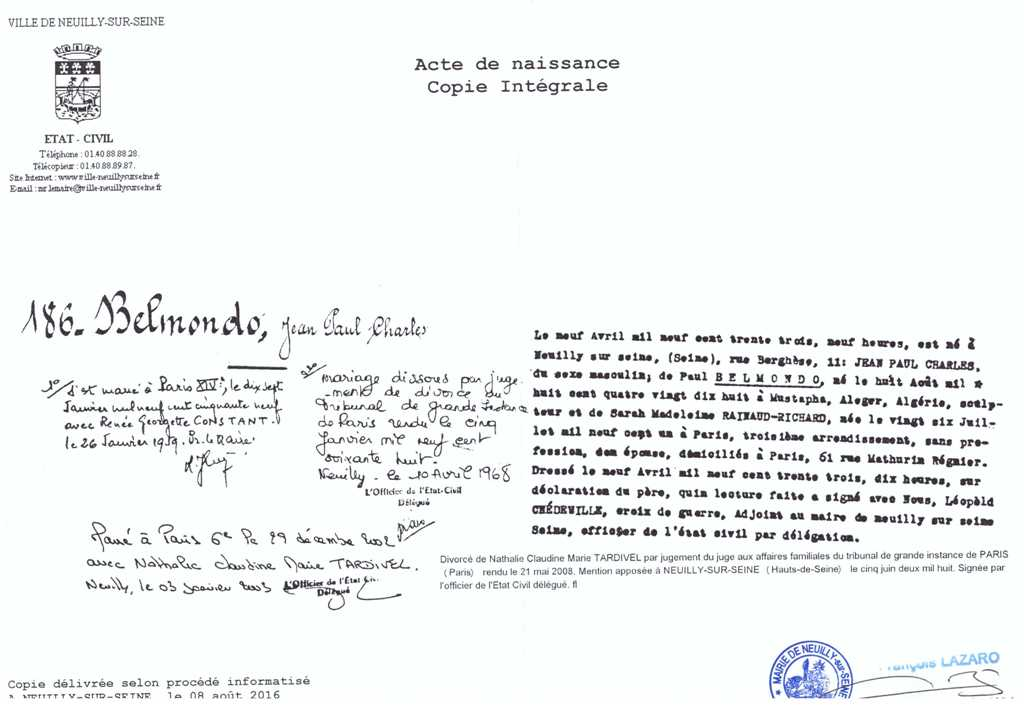 VILLE DE NEUILLY-SUR-SEINE
ETAT - CIVIL
Téléphone : 01.40.88.88.28.
Télécopieur : 01.40.88.89.87.
Site Internet : www.ville-neuillysurseine.fr
E-mail : mr.lemaire@ville-neuillysurseine.fr
Acte de naissance
Copie Intégrale
186_ Belmondo, Jean Paul Charles
1°/ S'est marié à Paris XIVe, le dix sept
Janvier mil neuf cent cinquante neuf
avec Renée Georgette CONSTANT.
le 26 Janvier 1959.
2°/
mariage dissous par juge-
-ment de divorce du
Tribunal de Grande Instance
de Paris rendu le cinq
janvier mil neuf cent
soixante huit.
Neuilly. le 10 Avril 1968
L'Officier de l'Etat-Civil
Délégué
Marié à Paris 6e le 29 décembre 2002
avec Nathalie Claudine Marie TARDIVEL.
Neuilly, le 03 janvier 2003
L'Officier de l'Etat-Civil
Délégué
Le neuf Avril mil neuf cent trente trois, neuf heures, est né à
Neuilly sur seine, (Seine), rue Berghèse, 11: JEAN PAUL CHARLES,
du sexe masculin; de Paul BELMONDO, né le huit Août mil
huit cent quatre vingt dix huit à Mustapha, Aleger, Algérie, sculp-
teur et de Sarah Madeleine RAINAUD-RICHARD, née le vingt six Juil-
let mil neuf cent un à Paris, troisième arrondissement, sans pro-
fession, dem épouse, démiciliés à Paris, 61 rue Mathurin Régnier.
Dressé le neuf Avril mil neuf cent trente trois, dix heures, sur
déclaration du père, quin lecture faite a signé avec Nous, Léopèld
CHÉDEVILLE, croix de guerre, Adjoint au maire de neuilly sur seine
Seine, officier de l'état civil par délégation.
Divorcé de Nathalie Claudine Marie TARDIVEL par jugement du juge aux affaires familiales du tribunal de grande instance de PARIS
(Paris) rendu le 21 mai 2008. Mention apposée à NEUILLY-SUR-SEINE (Hauts-de-Seine) le cinq juin deux mil huit. Signée par
l'officier de l'Etat Civil délégué. fl
MAIRIE DE NEUILLY-sur-SEINE
François LAZARO
Copie délivrée selon procédé informatisé
A NEUILLY-SUR-SEINE, le 08 août 2016